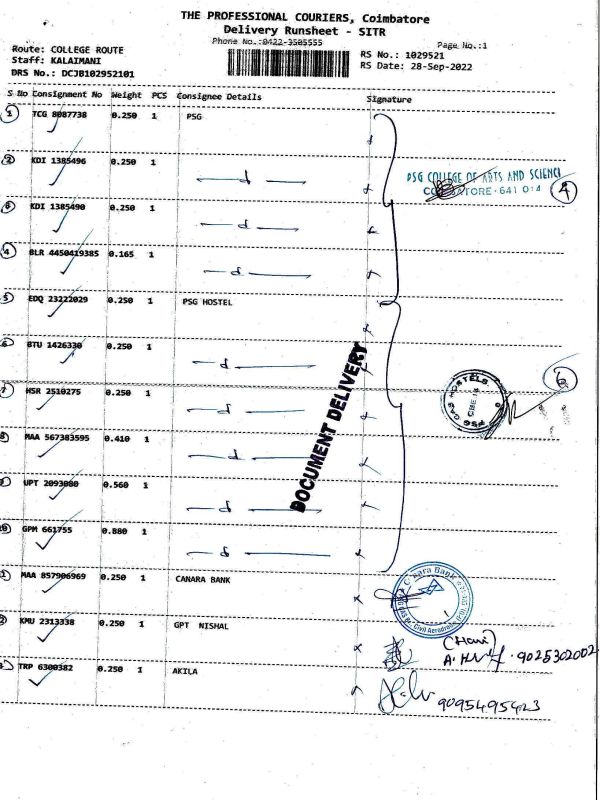 THE PROFESSIONAL COURIERS, Coimbatore
Delivery Runsheet - SITR
Phone No.:0422-3505555
Page No.:1
Route: COLLEGE ROUTE
Staff: KALAIMANI
DRS No.: DCJB102952101
RS No.: 1029521
RS Date: 28-Sep-2022
S No Consignment No Weight PCS Consignee Details Signature
1 TCG 8087738 0.250 1 PSG
2 KDI 1385496 0.250 1
PSG COLLEGE OF ARTS AND SCIENCE
COIMBATORE - 641 014
4
3 KDI 1385490 0.250 1
4 BLR 4450419385 0.165 1
5 EDQ 23222029 0.250 1 PSG HOSTEL
6 BTU 1426330 0.250 1
DOCUMENT DELIVERY
PSG CAS HOSTELS
CBE-14
6
7 HSR 2510275 0.250 1
8 MAA 567383595 0.410 1
9 UPT 2093080 0.560 1
10 GPM 661755 0.880 1
MAA 857906969 0.250 1 CANARA BANK
Canara Bank
Civil Aerodrome
KMU 2313338 0.250 1 GPT NISHAL
(Hari)
9025302002
TRP 6300382 0.250 1 AKILA
9095495423